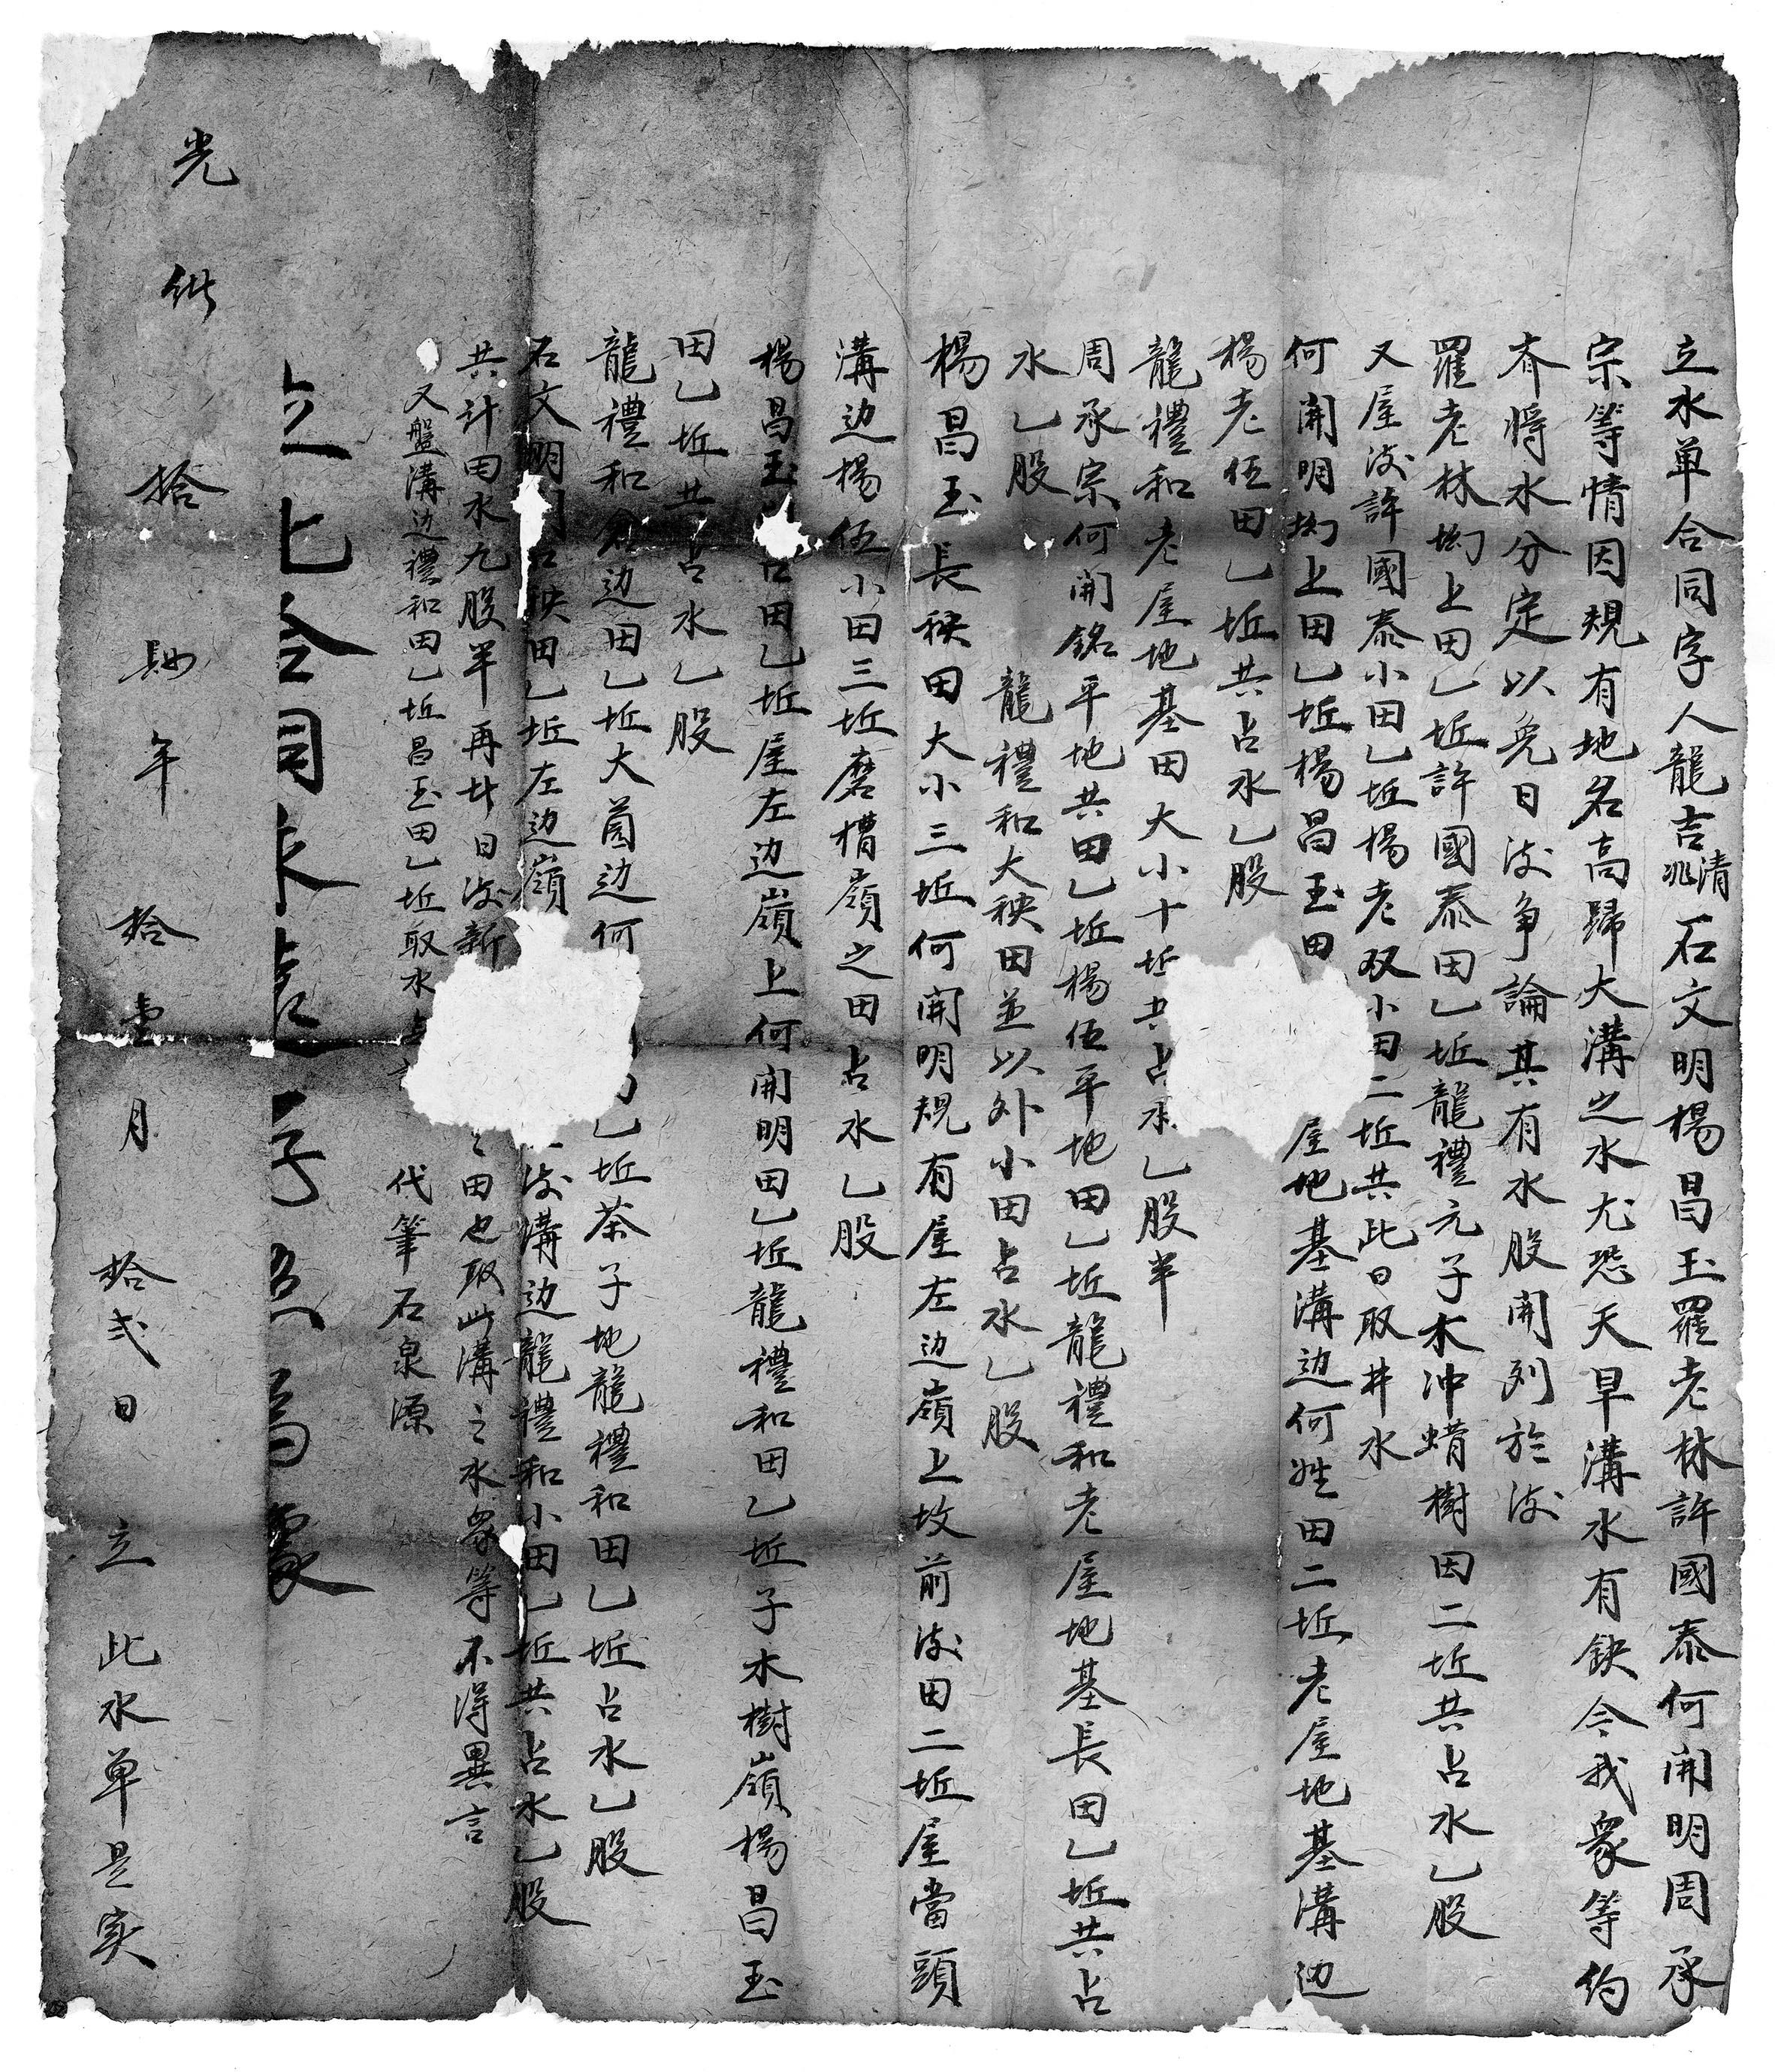 立水单合同字人龍吉清兆石文明楊昌玉羅老林許國泰何開明周承
宗等情因規有地名高歸大溝之水尤恐天旱溝水有缺今我衆等约
齐將水分定以免日後争論其有水股開列於後
羅老林坳上田乙坵許國泰田乙坵龍禮元子木冲蜡樹田二坵共占水乙股
又屋後許國泰小田乙坵楊老双小田二坵共此日取井水
何開明坳上田乙坵楊昌玉田 屋地基溝边何姓田二坵老屋地基溝边
楊老伍田乙坵共占水乙股
龍禮和老屋地基田大小十坵共占水乙股半
周承宗何開銘平地共田乙坵楊伍平地田乙坵龍禮和老屋地基長田乙坵共占
水乙股
龍禮和大秧田並以外小田占水乙股
楊昌玉長秧田大小三坵何開明規有屋左边嶺上坟前後田二坵屋當頭
溝边楊伍小田三坵磨槽嶺之田占水乙股
楊昌玉 田乙坵屋左边嶺上何開明田乙坵龍禮和田乙坵子木樹嶺楊昌玉
田乙坵共占水乙股
龍禮和倉边田乙坵大薗边何 乙坵茶子地龍禮和田乙坵占水乙股
石文明 秧田乙坵左边嶺 後溝边龍禮和小田乙坵共占水乙股
共计田水九股半再廾日後新 田也取此溝之水衆等不得異言
又盤溝边禮和田乙坵昌玉田乙坵取水
代筆石泉源
立 合同
光 拾 年拾壹月拾弍日立此水单是实